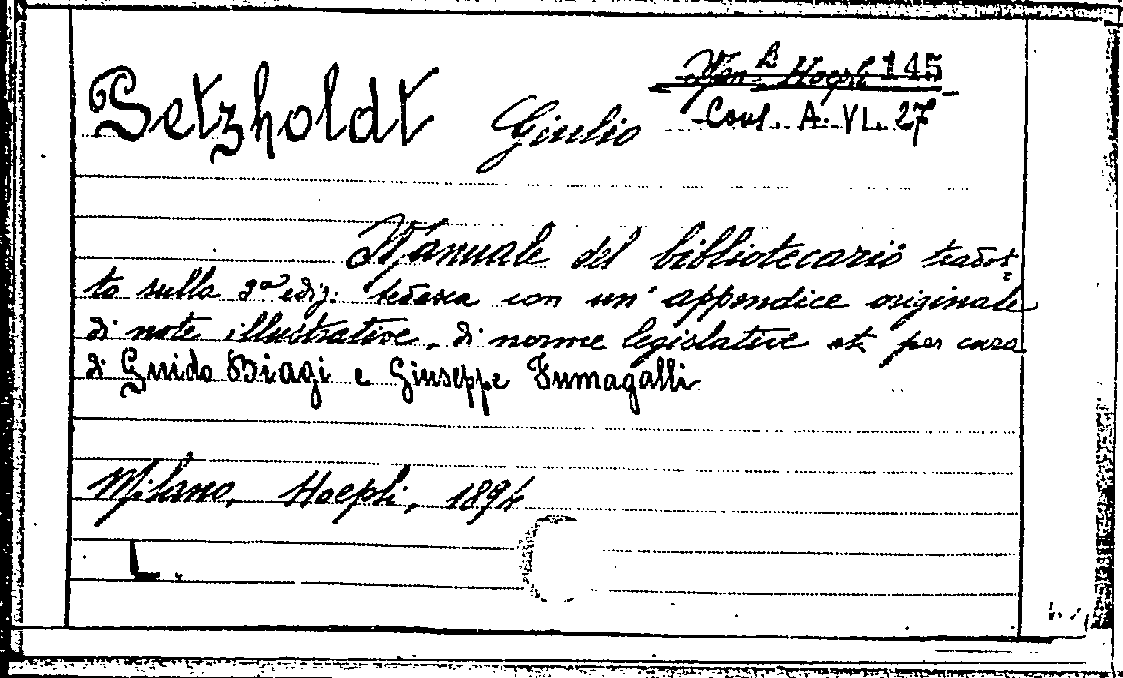 Man. B Hoepli 145
Petzholdt Giulio Cons. A. VI. 27
Manuale del bibliotecario tradot-
to sulla 3ª ediz. tedesca con un' appendice originale
di note illustrative, di norme legislative etc. per cura
di Guido Biagi e Giuseppe Fumagalli
Milano, Hoepli, 1894
L.